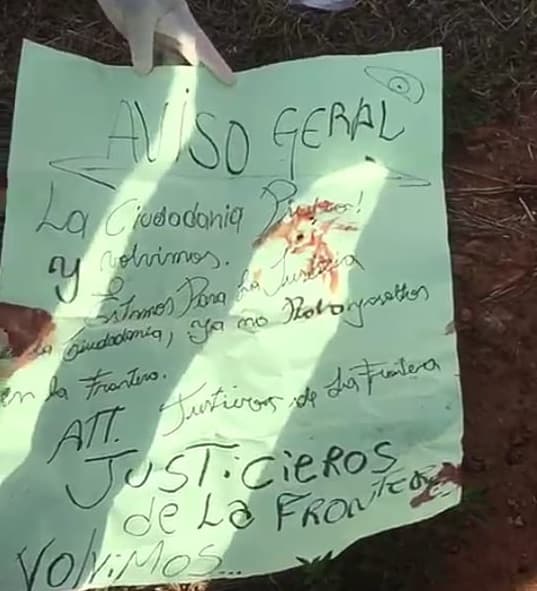 AViSO GERAL
La Ciudadania
y volvimos.
Estamos Para La Justicia
la Ciudadania, ya no
en la Frontera.
ATT. Justicieros de La Frontera
JUSTiCiEROS
de La FRONTERA
VOlViMOS...